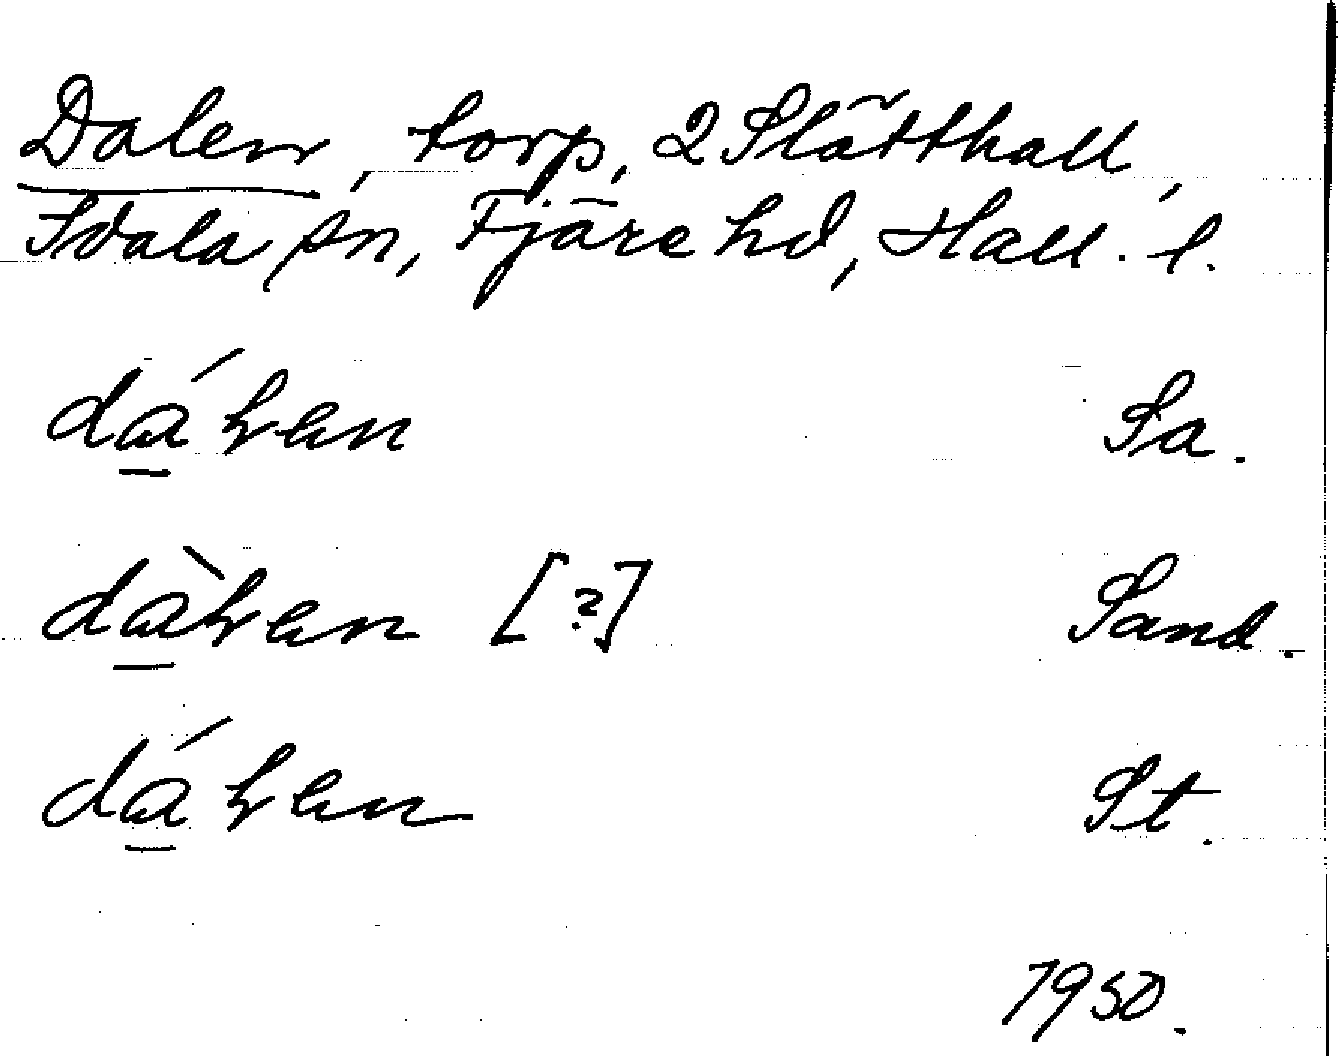 Dalen, torp, 2 Slätthall,
Idala sn, Fjäre hd, Hall. l.
dá̲ƚen Sa.
dà̲ƚen [?] Sand.
dá̲ƚen St.
1950.